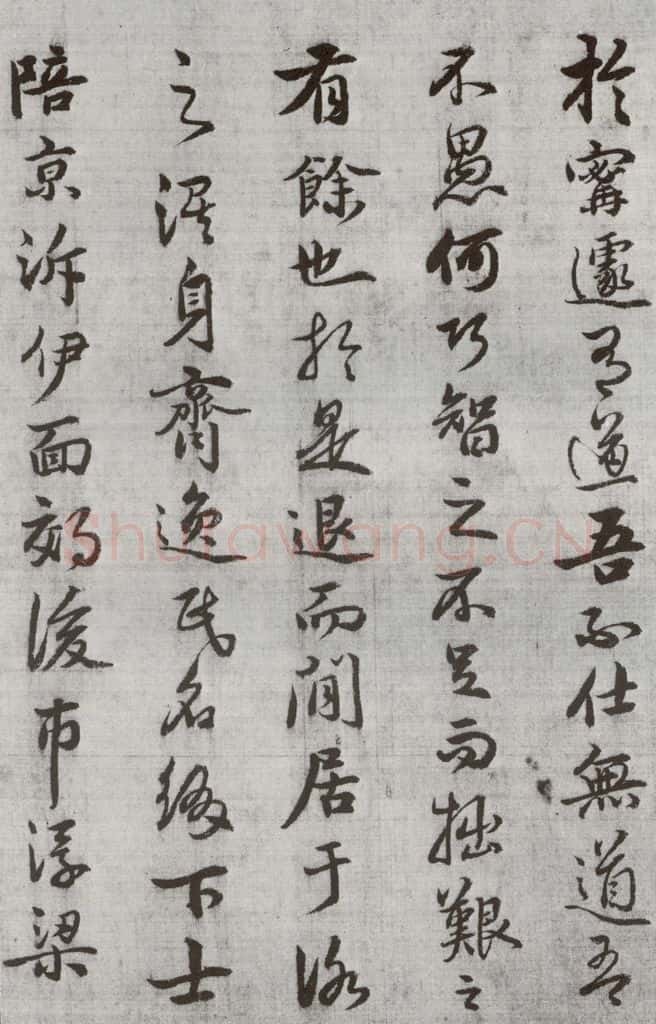 於甯蘧有道吾不仕無道吾
不愚何巧智之不足而拙艱之
有餘也於是退而閒居于洛
之涘身齊逸民名綴下士
陪京泝伊面郊後市浮梁
Shufawang.CN